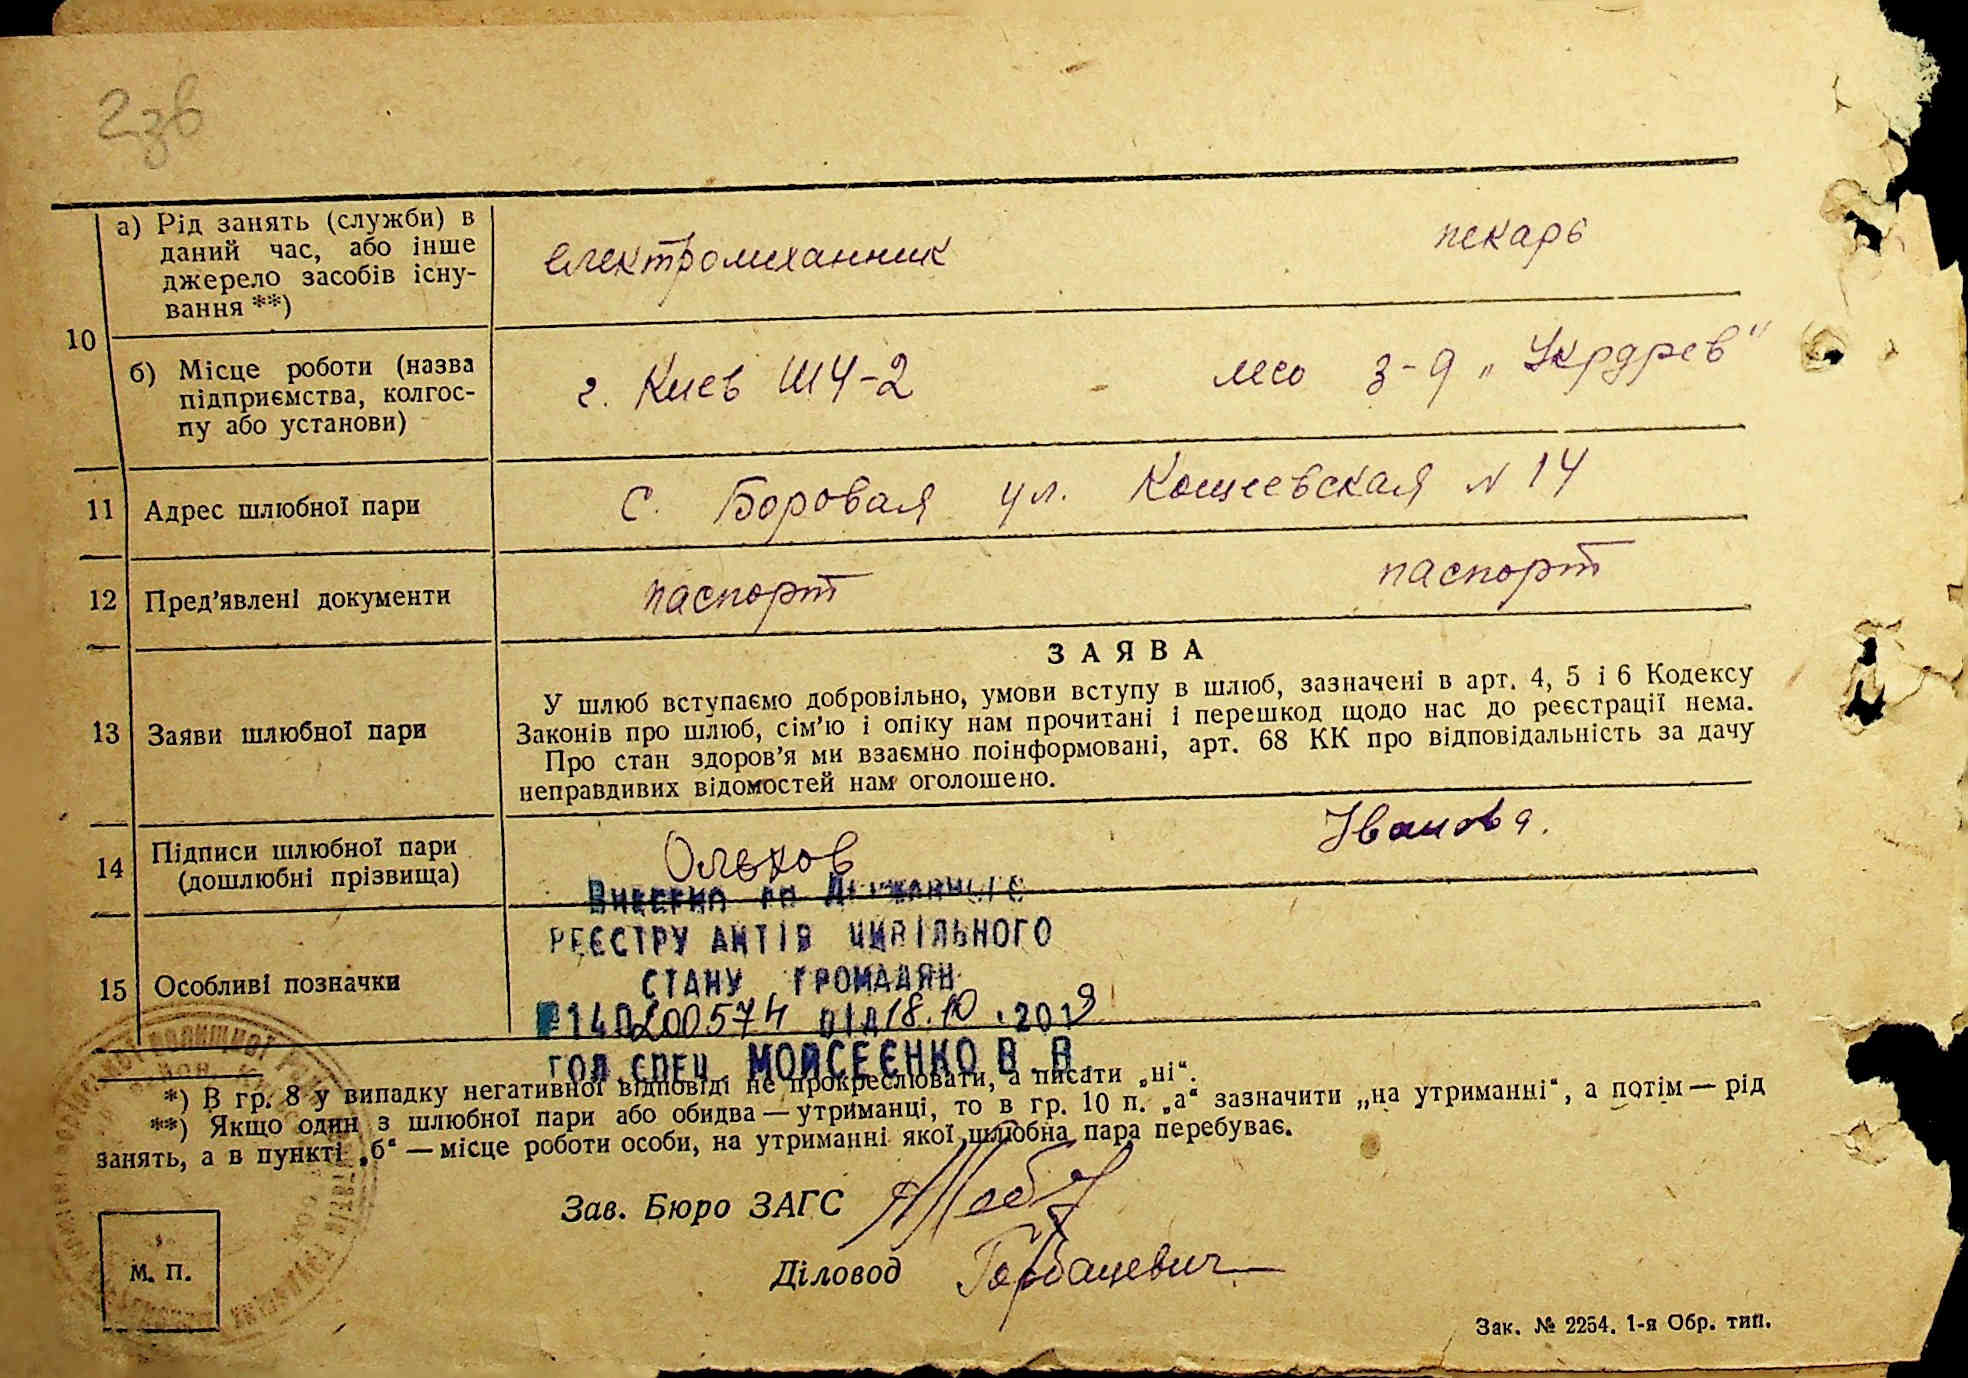 2зв
10
а) Рід занять (служби) в
даний час, або інше
джерело засобів існу-
вання **)
електромиханник
пекарь
б) Місце роботи (назва
підприємства, колгос-
пу або установи)
г. Киев ШЧ-2
лесо з-д „Укрдрев"
11 Адрес шлюбної пари
с. Боровая ул. Кощеевская N 14
12 Пред'явлені документи
паспорт
паспорт
13 Заяви шлюбної пари
ЗАЯВА
У шлюб вступаємо добровільно, умови вступу в шлюб, зазначені в арт. 4, 5 і 6 Кодексу
Законів про шлюб, сім'ю і опіку нам прочитані і перешкод щодо нас до реєстрації нема.
Про стан здоров'я ми взаємно поінформовані, арт. 68 КК про відповідальність за дачу
неправдивих відомостей нам оголошено.
14 Підписи шлюбної пари
(дошлюбні прізвища)
Ольхов
Іванова.
15 Особливі позначки
Внесено до Державного
РЕЄСТРУ АКТІВ ЦИВІЛЬНОГО
СТАНУ ГРОМАДЯН
№140200574 від 18.10.2019
ГОЛ.СПЕЦ. МОЙСЕЄНКО В.В.
*) В гр. 8 у випадку негативної відповіді не прокреслювати, а писати „ні“.
**) Якщо один з шлюбної пари або обидва — утриманці, то в гр. 10 п. „а“ зазначити „на утриманні“, а потім — рід
занять, а в пункті „б“ — місце роботи особи, на утриманні якої шлюбна пара перебуває.
Зав. Бюро ЗАГС
Діловод Горбацевич
М. П.
Зак. № 2254. 1-я Обр. тип.